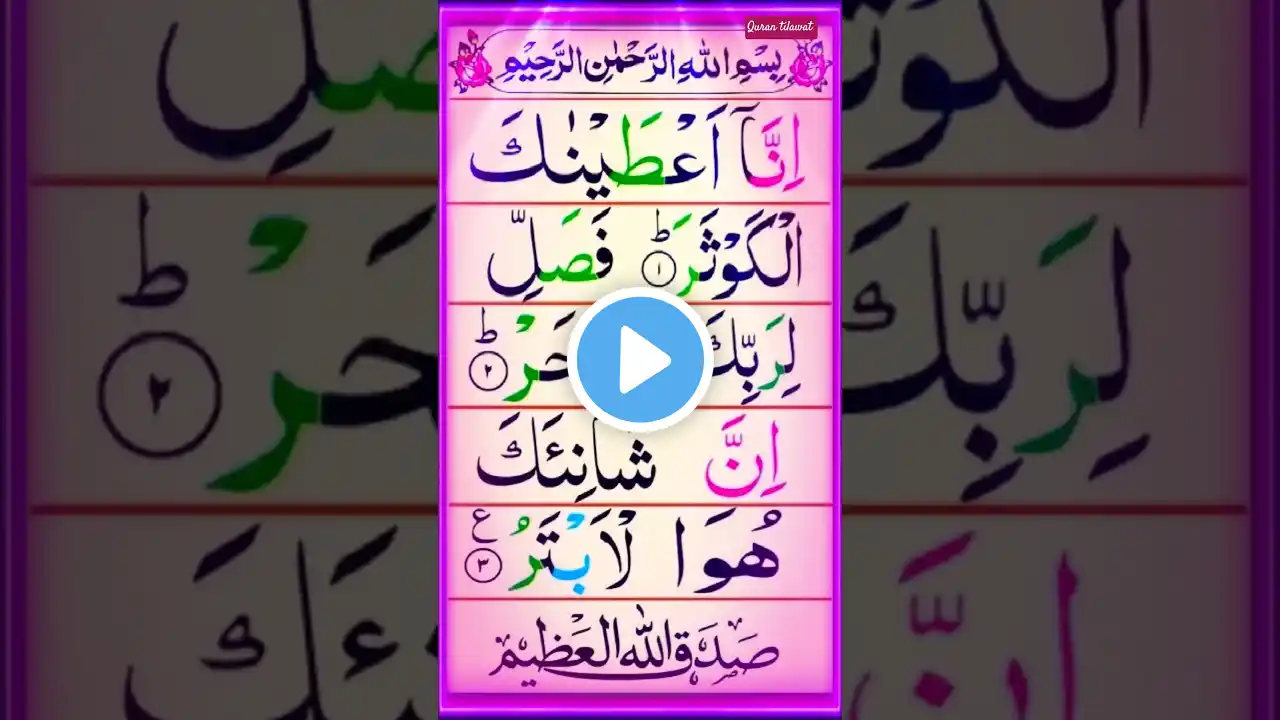 Quran tilawat
بِسْمِ اللهِ الرَّحْمٰنِ الرَّحِيْمِ
اِنَّاۤ اَعْطَيْنٰكَ
الْكَوْثَرَؕ ١ فَصَلِّ
لِرَبِّكَ حَرْؕ ٢
اِنَّ شَانِئَكَ
هُوَا لْاَبْتَرُ ٣ ع
صَدَقَ اللهُ الْعَظِيْم